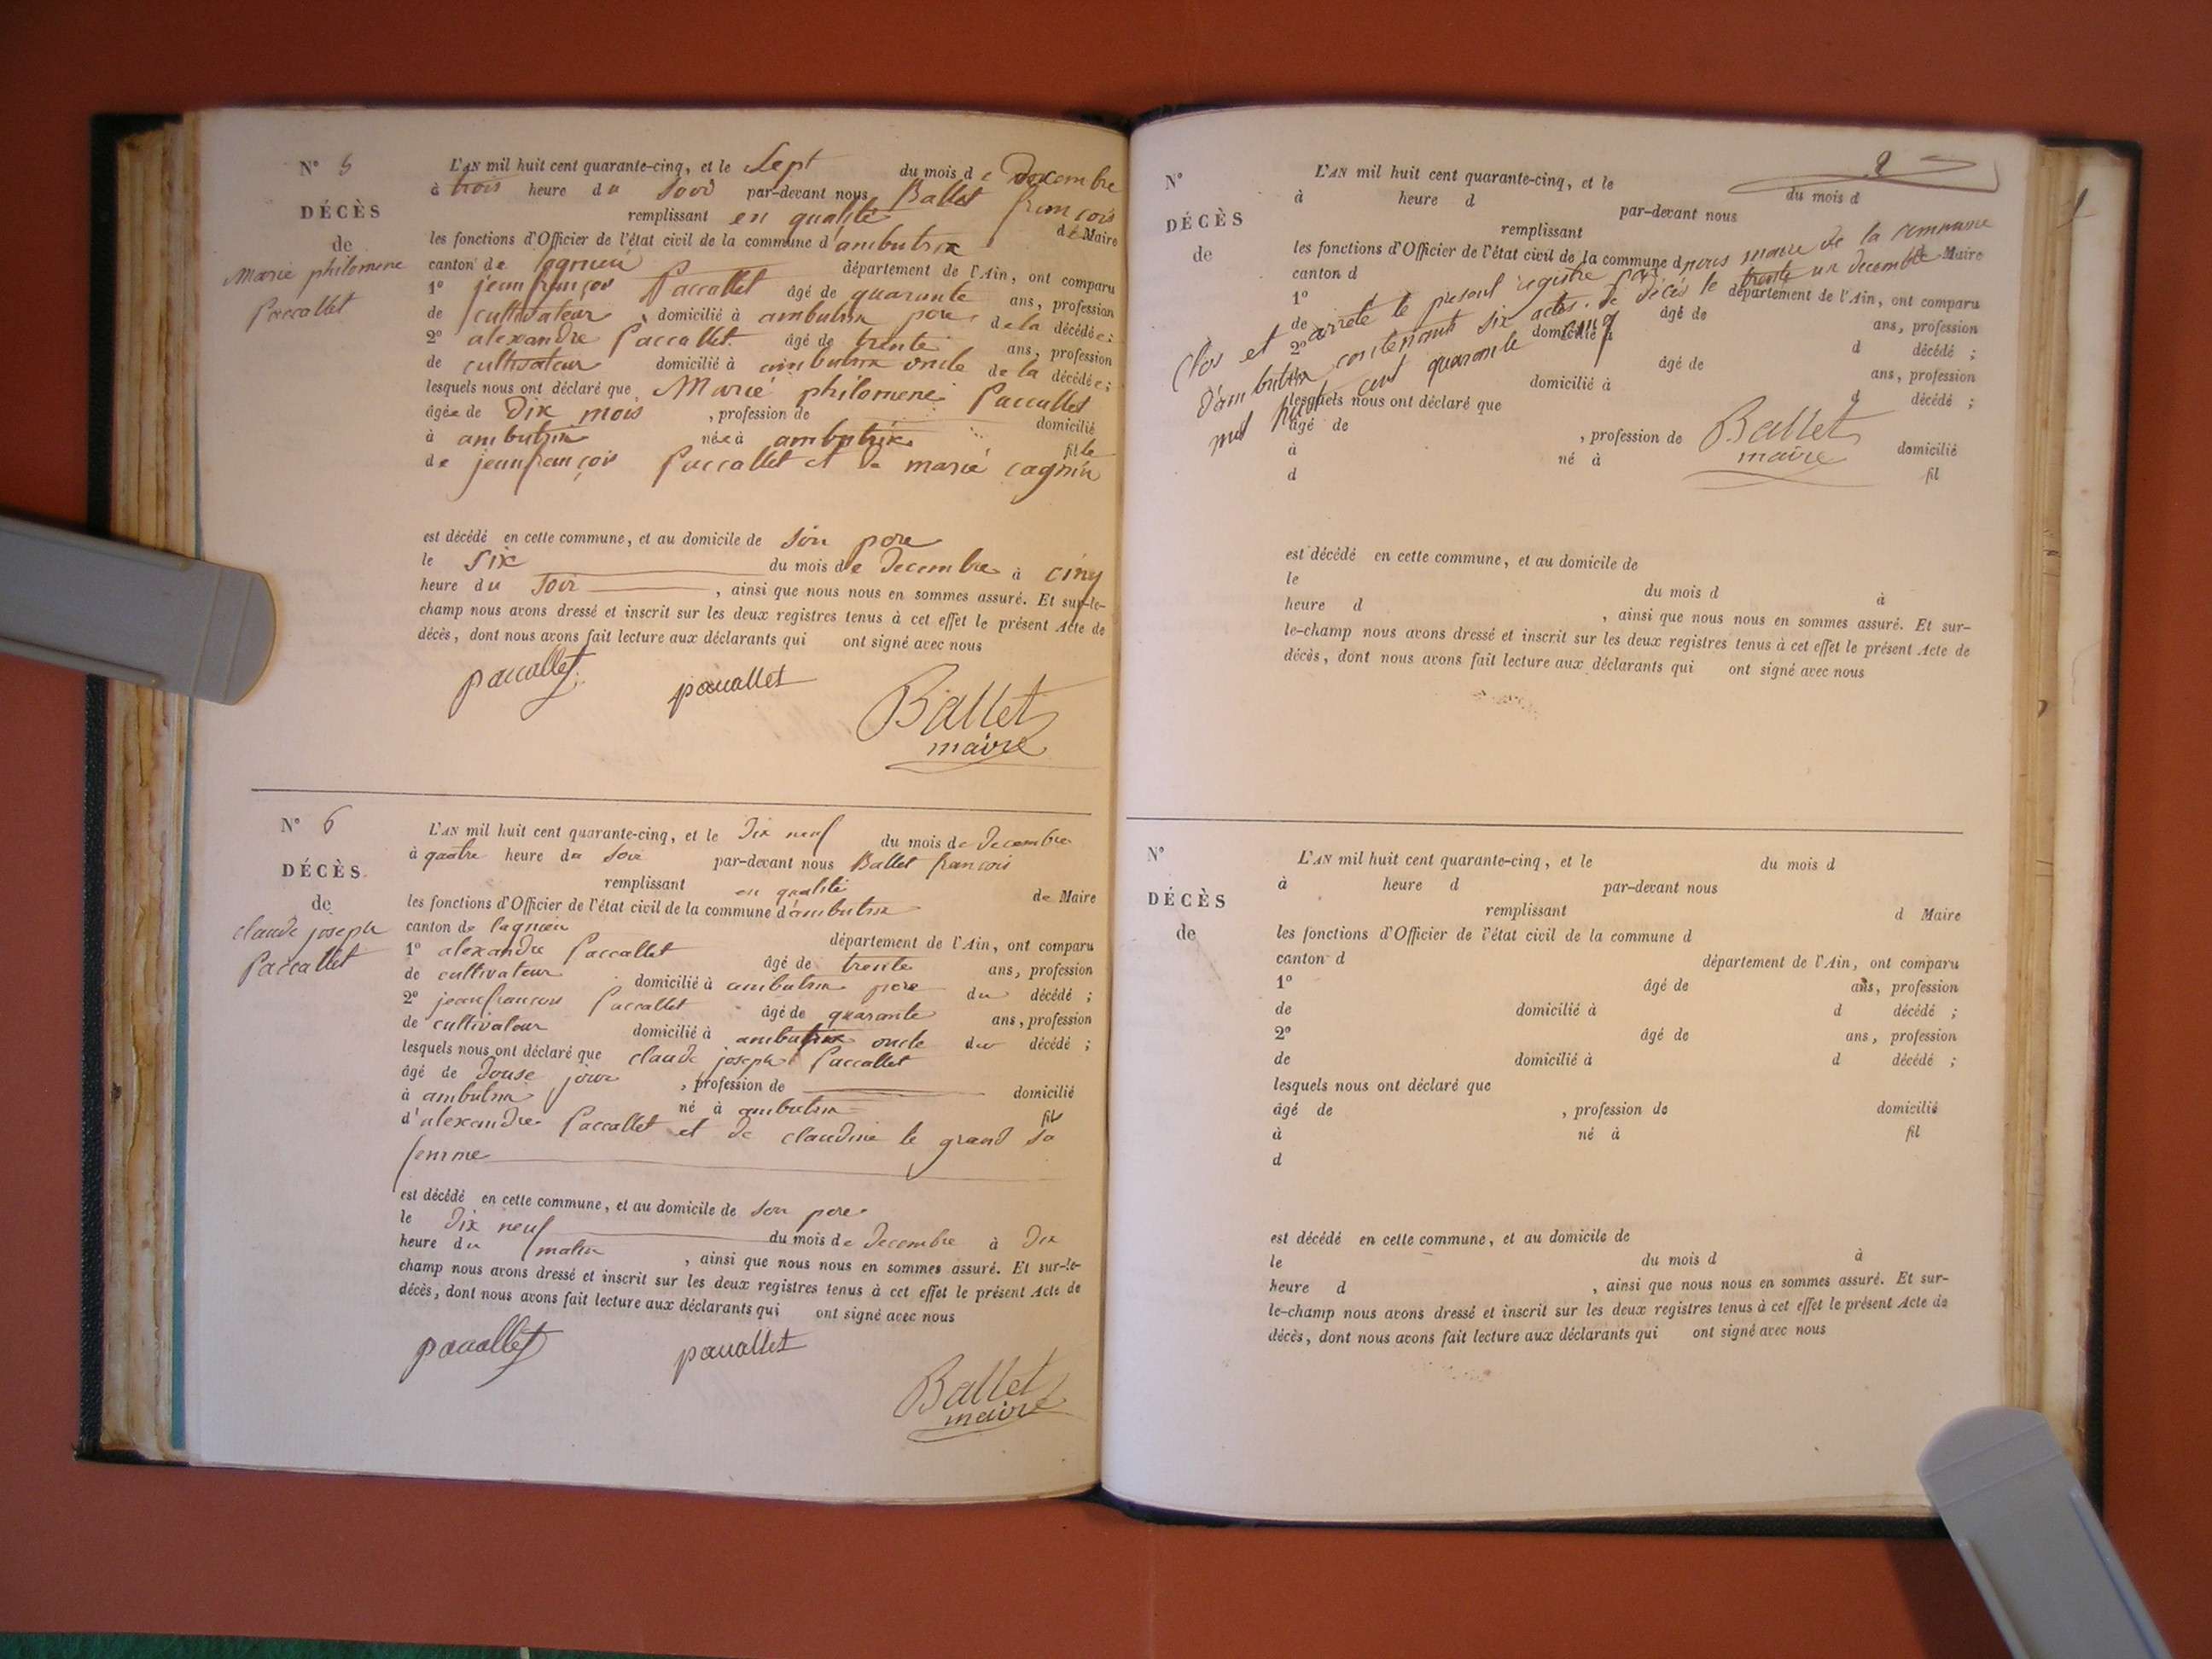 N° 5
DÉCÈS
de
Marie philomene
Paccallet
L'AN mil huit cent quarante-cinq, et le Sept du mois de Decembre
à trois heure du Soir par-devant nous Ballet françois
remplissant en qualité de Maire
les fonctions d'Officier de l'état civil de la commune d'ambutrix
canton de lagnieu département de l'Ain, ont comparu
1° jeanfrançois Paccallet âgé de quarante ans, profession
de cultivateur domicilié à ambutrix pere de la décédée;
2° alexandre Paccallet âgé de trente ans, profession
de cultivateur domicilié à ambutrix oncle de la décédée;
lesquels nous ont déclaré que Marie philomene Paccallet
âgée de dix mois, profession de domicilié
à ambutrix née à ambutrix fille
de jeanfrançois Paccallet et de marie cagnin
est décédé en cette commune, et au domicile de son pere
le six du mois de decembre à cinq
heure du soir, ainsi que nous nous en sommes assuré. Et sur-le-
champ nous avons dressé et inscrit sur les deux registres tenus à cet effet le présent Acte de
décès, dont nous avons fait lecture aux déclarants qui ont signé avec nous
paccallet paccallet Ballet
maire
N° 6
DÉCÈS
de
claude joseph
Paccallet
L'AN mil huit cent quarante-cinq, et le dix neuf du mois de decembre
à quatre heure du soir par-devant nous Ballet françois
remplissant en qualité de Maire
les fonctions d'Officier de l'état civil de la commune d'ambutrix
canton de lagnieu département de l'Ain, ont comparu
1° alexandre Paccallet âgé de trente ans, profession
de cultivateur domicilié à ambutrix pere du décédé;
2° jeanfrancois Paccallet âgé de quarante ans, profession
de cultivateur domicilié à ambutrix oncle du décédé;
lesquels nous ont déclaré que claude joseph Paccallet
âgé de douse jour, profession de domicilié
à ambutrix né à ambutrix fils
d'alexandre Paccallet et de claudine le grand sa
femme
est décédé en cette commune, et au domicile de son pere
le dix neuf du mois de decembre à dix
heure du matin, ainsi que nous nous en sommes assuré. Et sur-le-
champ nous avons dressé et inscrit sur les deux registres tenus à cet effet le présent Acte de
décès, dont nous avons fait lecture aux déclarants qui ont signé avec nous
paccallet paccallet Ballet
maire
N°
DÉCÈS
de
L'AN mil huit cent quarante-cinq, et le du mois d
à heure d par-devant nous
remplissant d Maire
les fonctions d'Officier de l'état civil de la commune d
canton d département de l'Ain, ont comparu
1° âgé de ans, profession
de domicilié à d décédé;
2° âgé de ans, profession
domicilié à d décédé;
lesquels nous ont déclaré que
âgé de, profession de domicilié
à né à fil
d
Clos et arrêté le present registre par nous maire de la commune
d'ambutrix contenant six actes de décès le trente un decembre
mil huit cent quarante cinq
Ballet
maire
est décédé en cette commune, et au domicile de
le du mois d à
heure d, ainsi que nous nous en sommes assuré. Et sur-
le-champ nous avons dressé et inscrit sur les deux registres tenus à cet effet le présent Acte de
décès, dont nous avons fait lecture aux déclarants qui ont signé avec nous
N°
DÉCÈS
de
L'AN mil huit cent quarante-cinq, et le du mois d
à heure d par-devant nous
remplissant d Maire
les fonctions d'Officier de l'état civil de la commune d
canton d département de l'Ain, ont comparu
1° âgé de ans, profession
de domicilié à d décédé;
2° âgé de ans, profession
de domicilié à d décédé;
lesquels nous ont déclaré que
âgé de, profession de domicilié
à né à fil
d
est décédé en cette commune, et au domicile de
le du mois d à
heure d, ainsi que nous nous en sommes assuré. Et sur-
le-champ nous avons dressé et inscrit sur les deux registres tenus à cet effet le présent Acte de
décès, dont nous avons fait lecture aux déclarants qui ont signé avec nous